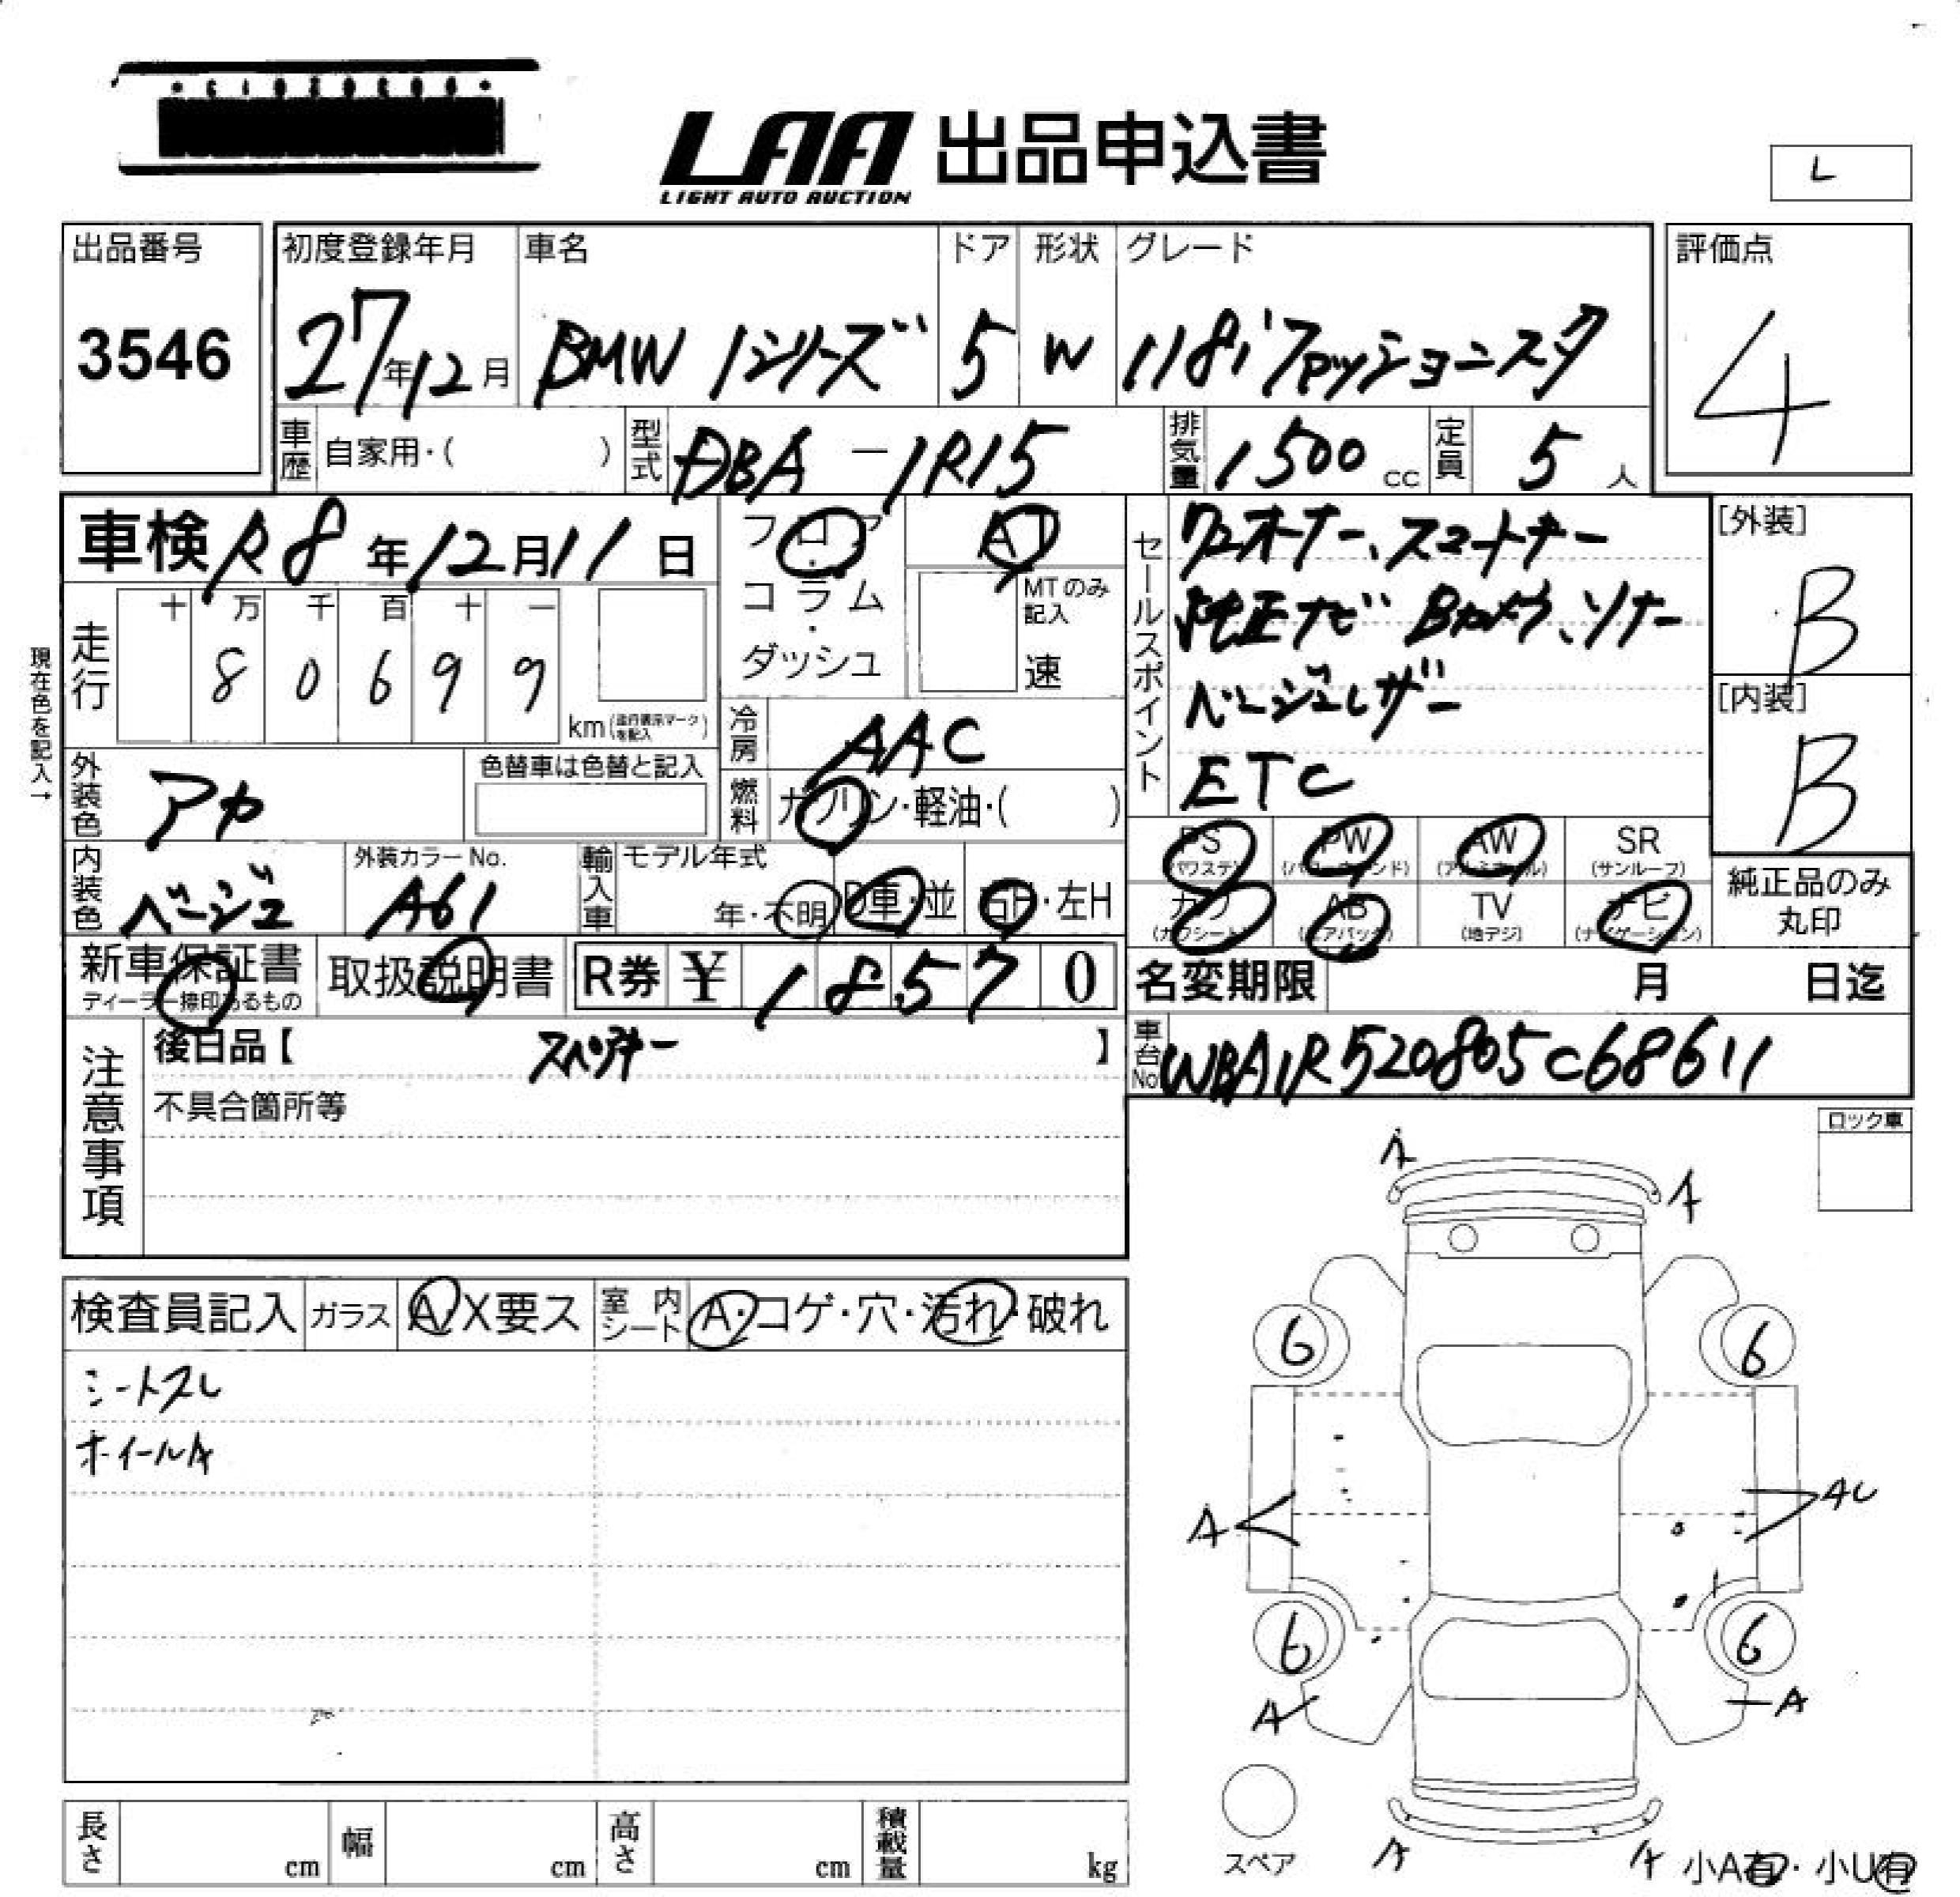 LAA 出品申込書
LIGHT AUTO AUCTION
L
出品番号 初度登録年月 車名 ドア 形状 グレード 評価点
3546 27年12月 BMW 1シリーズ 5 W 118i ファッショニスタ 4
車歴 自家用・( ) 型式 DBA-1R15 排気量 1500 cc 定員 5 人
車検 R8年12月11日 フロア・コラム・ダッシュ AT
MTのみ記入 速
セールスポイント
ワンオーナー、スマートキー
純正ナビ Bカメラ、ソナー
ベージュレザー
ETC
[外装] B
[内装] B
現在色を記入→
走行 十 万 千 百 十 一
8 0 6 9 9
km (走行表示マークを記入)
冷房 AAC
外装色 アカ 色替車は色替と記入
燃料 ガソリン・軽油・( )
PS (パワステ) PW (パワーウィンド) AW (アルミホイール) SR (サンルーフ)
カワ (カワシート) AB (エアバック) TV (地デジ) ナビ (ナビゲーション)
純正品のみ丸印
内装色 ベージュ 外装カラーNo. A61 輸入車 モデル年式 年・不明 D車・並 右H・左H
新車保証書 ディーラー捺印あるもの 取扱説明書 R券 ¥ 1 8 5 7 0
名変期限 月 日迄
注意事項
後日品【 スペアキー 】
車台No WBA1R520805C68611
不具合箇所等
ロック車
A A
検査員記入 ガラス A・X要ス 室内シート A・コゲ・穴・汚れ・破れ
シートスレ
ホイールA
6 6
A AU
6 6
A A
スペア
A A
小A有・小U有
長さ cm 幅 cm 高さ cm 積載量 kg